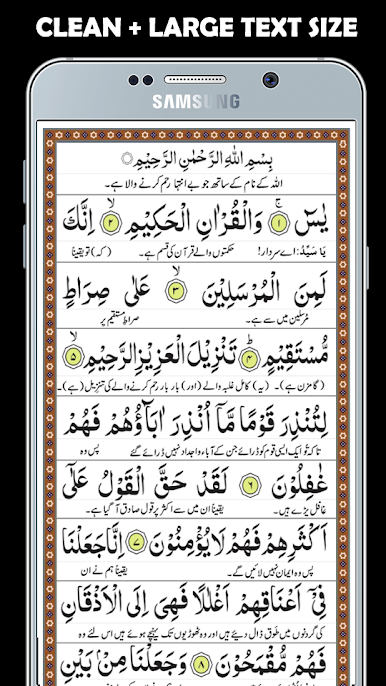 CLEAN + LARGE TEXT SIZE
SAMSUNG
بِسْمِ اللهِ الرَّحْمٰنِ الرَّحِيْمِ
اللہ کے نام کے ساتھ جو بے انتہا رحم کرنے والا ہے۔
يٰسٓ ۚ﴿۱﴾ وَالْقُرْاٰنِ الْحَكِيْمِ ۙ﴿۲﴾ اِنَّكَ
یَا سَیِّدُ: اے سردار! حکمتوں والے قرآن کی قسم ہے۔ (کہ) تو یقیناً
لَمِنَ الْمُرْسَلِيْنَ ۙ﴿۳﴾ عَلٰى صِرَاطٍ
مُرسَلین میں سے ہے۔ صراطِ مستقیم پر
مُّسْتَقِيْمٍ ؕ﴿۴﴾ تَنْزِيْلَ الْعَزِيْزِ الرَّحِيْمِ ۙ﴿۵﴾
(گامزن ہے)۔ (یہ) کامل غلبہ والے (اور) بار بار رحم کرنے والے کی تنزیل (ہے)۔
لِتُنْذِرَ قَوْمًا مَّاۤ اُنْذِرَ اٰبَآؤُهُمْ فَهُمْ
تاکہ تُو ایک ایسی قوم کو ڈرائے جن کے آباء و اجداد نہیں ڈرائے گئے پس وہ
غٰفِلُوْنَ ﴿۶﴾ لَقَدْ حَقَّ الْقَوْلُ عَلٰۤى
غافل پڑے ہیں۔ یقیناً ان میں سے اکثر پر قول صادق آ گیا ہے۔
اَكْثَرِهِمْ فَهُمْ لَا يُؤْمِنُوْنَ ﴿۷﴾ اِنَّا جَعَلْنَا
پس وہ ایمان نہیں لائیں گے۔ یقیناً ہم نے ان
فِيْۤ اَعْنَاقِهِمْ اَغْلٰلًا فَهِيَ اِلَى الْاَذْقَانِ
کی گردنوں میں طوق ڈال دیئے ہیں اور وہ ٹھوڑیوں تک پہنچے ہوئے ہیں اس لئے وہ
فَهُمْ مُّقْمَحُوْنَ ﴿۸﴾ وَجَعَلْنَا مِنْۢ بَيْنِ